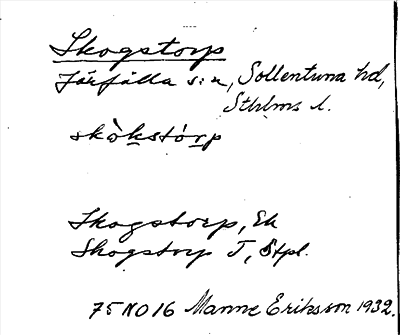 Skogstorp
Järfälla s:n, Sollentuna hd,
Sthlms l.
skòkstórp
Skogstorp, Ek
Skogstorp T, Stpl.
75 NO 16 Manne Eriksson 1932.